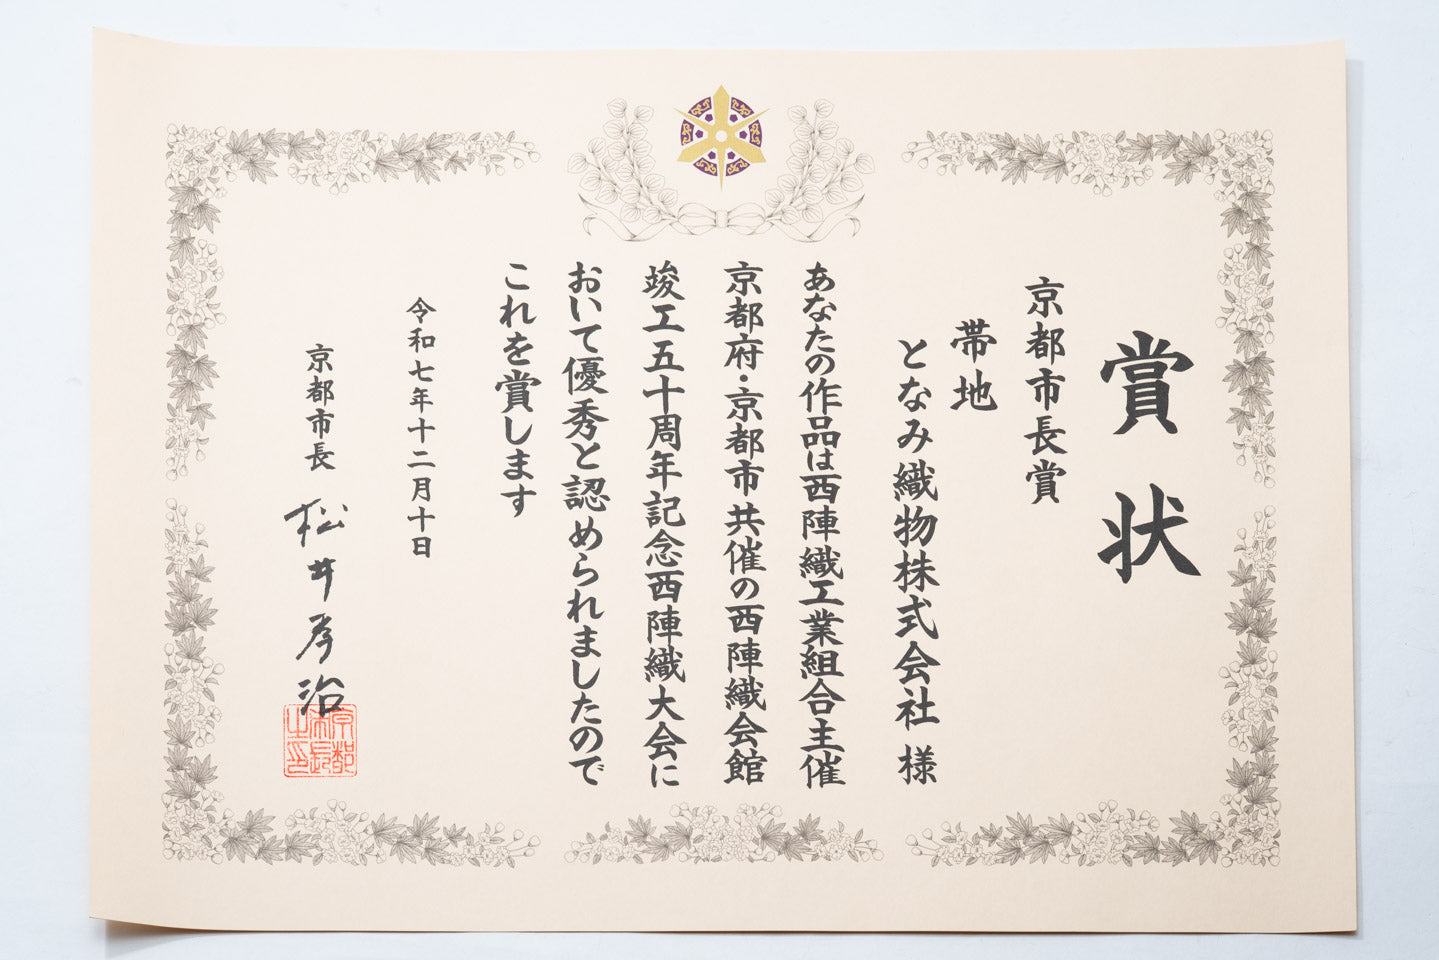 賞状
京都市長賞
帯地
となみ織物株式会社 様
あなたの作品は西陣織工業組合主催
京都府・京都市共催の西陣織会館
竣工五十周年記念西陣織大会に
おいて優秀と認められましたので
これを賞します
令和七年十二月十日
京都市長 松井孝治
京都市長之印